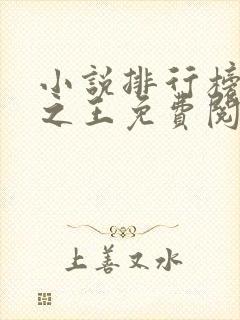 小說排行榜
之王免費閱
上善又水